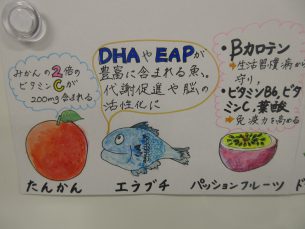 みかんの2倍の
ビタミンCが
200mg含まれる
たんかん
DHAやEAPが
豊富に含まれる魚。
代謝促進や脳の
活性化に
エラブチ
・βカロテン
→生活習慣病から
守り、
・ビタミンB6、ビタ
ミンC、葉酸
→免疫力を高める
パッションフルーツ
ド